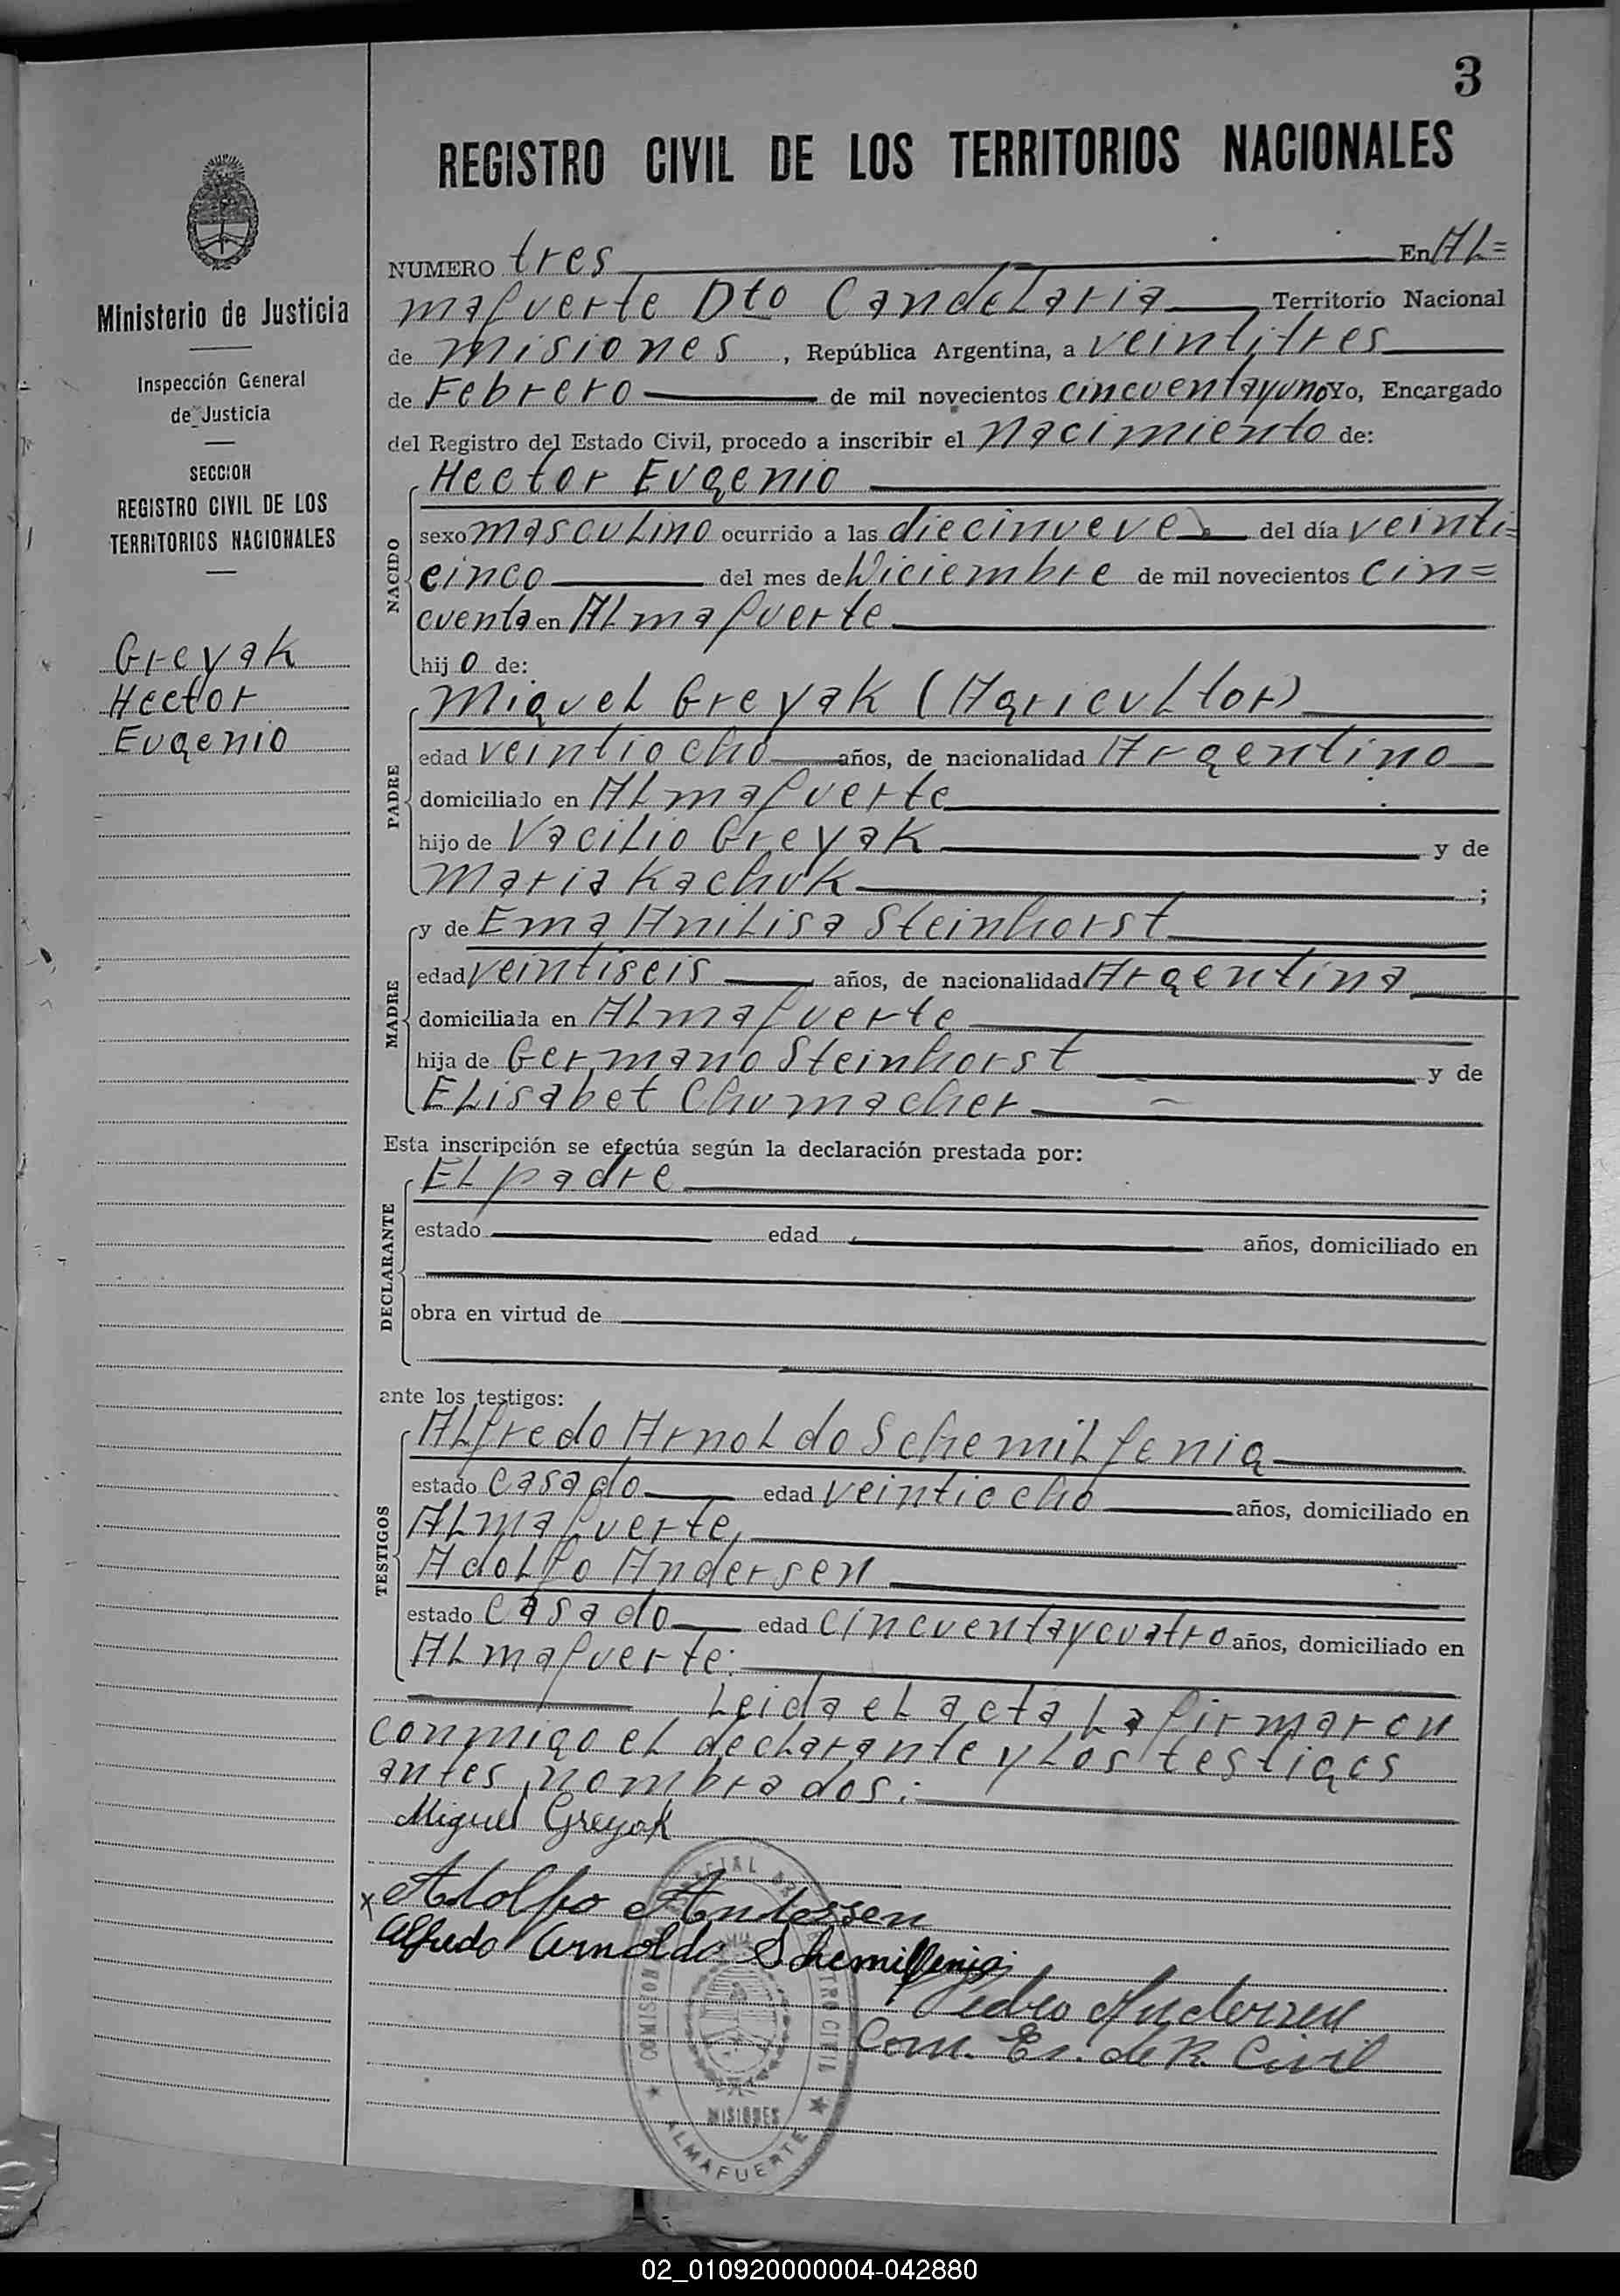 3
REGISTRO CIVIL DE LOS TERRITORIOS NACIONALES
Ministerio de Justicia
Inspección General
de Justicia
SECCION
REGISTRO CIVIL DE LOS
TERRITORIOS NACIONALES
Greyak
Hector
Eugenio
NUMERO tres En AL=
mafuerte Dto Candelaria Territorio Nacional
de misiones, República Argentina, a veintitres
de Febrero de mil novecientos cincuentayuno Yo, Encargado
del Registro del Estado Civil, procedo a inscribir el nacimiento de:
NACIDO
Hector Eugenio
sexo masculino ocurrido a las diecinueve del día veinti=
cinco del mes de Diciembre de mil novecientos cin=
cuenta en ALmafuerte
hijo de:
PADRE
Miguel Greyak (Agricultor)
edad veintiocho años, de nacionalidad Argentino
domiciliado en ALmafuerte
hijo de Vacilio Greyak y de
Maria Kachuk;
MADRE
y de Ema Anilisa Steinhorst
edad veintiseis años, de nacionalidad Argentina
domiciliada en ALmafuerte
hija de Germano Steinhorst y de
Elisabet Chumacher
Esta inscripción se efectúa según la declaración prestada por:
DECLARANTE
El padre
estado edad años, domiciliado en
obra en virtud de
ante los testigos:
TESTIGOS
Alfredo Arnoldo Schemilfenig
estado casado edad veintiocho años, domiciliado en
ALmafuerte,
Adolfo Andersen
estado casado edad cincuentaycuatro años, domiciliado en
ALmafuerte:
Leida el acta, la firmaron
conmigo el declarante y los testigos
antes nombrados:
Miguel Greyak
x Adolfo Andersen
Alfredo Arnoldo Shemilfenig
Pedro Anderssen
Com. En. de R. Civil
COMISION
REGISTRO CIVIL
MISIONES
ALMAFUERTE
02_010920000004-042880